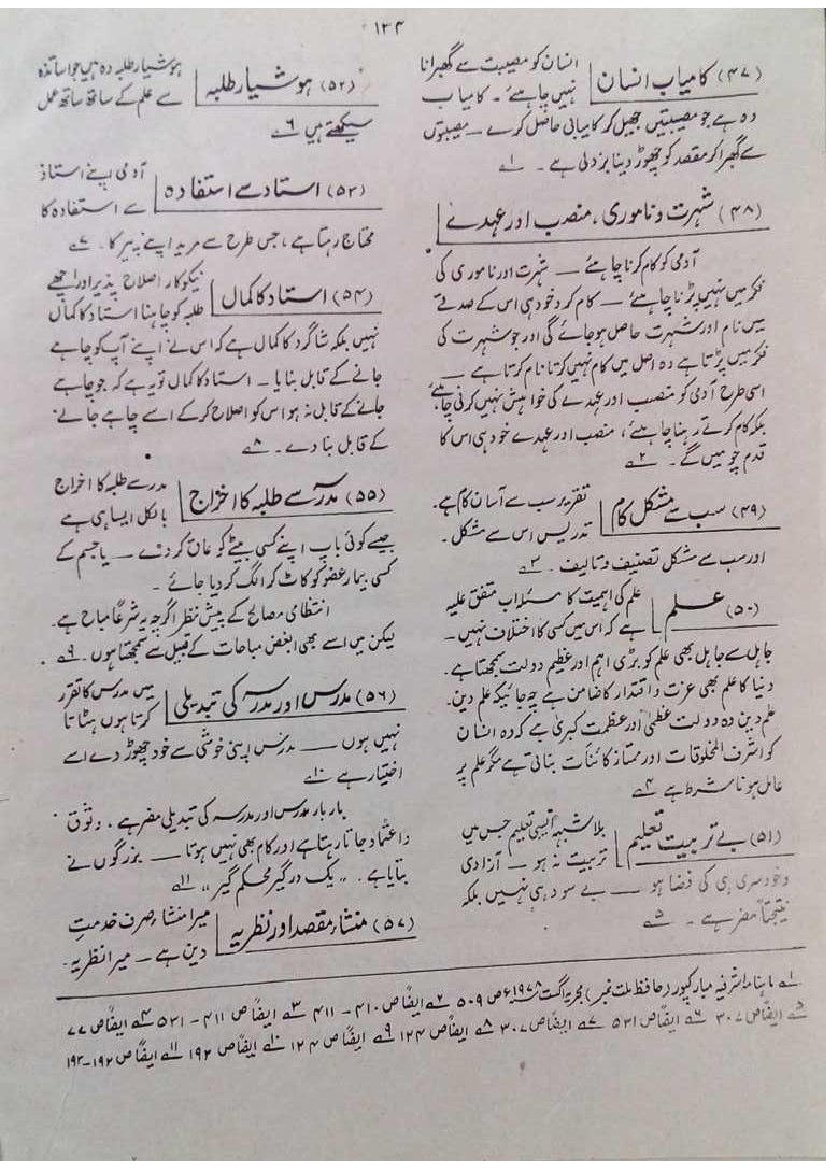 ۱۳۴
(۴۷) کامیاب انسان
انسان کو مصیبت سے گھبرانا
نہیں چاہئے ۔ کامیاب
وہ ہے جو مصیبتیں جھیل کر کامیابی حاصل کرے ۔ مصیبتوں
سے گھبرا کر مقصد کو چھوڑ دینا بزدلی ہے ۔ ۱ے
(۴۸) شہرت و ناموری، منصب اور عہدے
آدمی کو کام کرنا چاہئے ۔ شہرت اور ناموری کی
فکر میں نہیں پڑنا چاہئے ۔ کام کرو خود ہی اس کے صدقے
میں نام اور شہرت حاصل ہو جائے گی اور جو شہرت کی
فکر میں پڑتا ہے وہ اصل میں کام نہیں کرتا نام کرتا ہے ۔
اسی طرح آدمی کو منصب اور عہدے کی خواہش نہیں کرنی چاہئے
بلکہ کام کرتے رہنا چاہئے، منصب اور عہدے خود ہی اس کا
قدم چومیں گے ۔ ۲ے
(۴۹) سب سے مشکل کام
تقریر سب سے آسان کام ہے.
تدریس اس سے مشکل ۔
اور سب سے مشکل تصنیف و تالیف ۔ ۳ے
(۵۰) علم
علم کی اہمیت کا مسئلہ اب متفق علیہ
ہے کہ اس میں کسی کا اختلاف نہیں ۔
جاہل سے جاہل بھی علم کو بڑی اہم اور عظیم دولت سمجھتا ہے ۔
دنیا کا علم بھی عزت و اقتدار کا ضامن ہے چہ جائیکہ علم دین.
علم دین وہ دولت عظمیٰ اور عظمت کبریٰ ہے کہ وہ انسان
کو اشرف المخلوقات اور ممتاز کائنات بناتی ہے مگر علم پر
عامل ہونا شرط ہے ۴ے
(۵۱) بے تربیت تعلیم
بلا شبہ ایسی تعلیم جس میں
تربیت نہ ہو ۔ آزادی
و خود سری ہی کی فضا ہو ۔ بے سود ہی نہیں بلکہ
نتیجتاً مضر ہے ۔ ۵ے
(۵۲) ہوشیار طلبہ
ہوشیار طلبہ وہ ہیں جو اساتذہ
سے علم کے ساتھ ساتھ عمل
سیکھتے ہیں ۶ے
(۵۳) استاد سے استفادہ
آدمی اپنے استاذ
سے استفادہ کا
محتاج رہتا ہے، جس طرح سے مرید اپنے پیر کا ۔ ۷ے
(۵۴) استاد کا کمال
نیکو کار اصلاح پذیر اور اچھے
طلبہ کو چاہنا استاد کا کمال
نہیں بلکہ شاگرد کا کمال ہے کہ اس نے اپنے آپ کو چاہے
جانے کے قابل بنایا ۔ استاد کا کمال تو یہ ہے کہ جو چاہے
جانے کے قابل نہ ہو اس کو اصلاح کرکے اسے چاہے جانے
کے قابل بنا دے ۔ ۸ے
(۵۵) مدرسے سے طلبہ کا اخراج
مدرسے طلبہ کا اخراج
بالکل ایسا ہی ہے
جیسے کوئی باپ اپنے کسی بیٹے کو عاق کر دے ۔ یا جسم کے
کسی بیمار عضو کو کاٹ کر الگ کر دیا جائے ۔
انتظامی مصالح کے پیش نظر اگرچہ یہ شرعاً مباح ہے.
لیکن میں اسے بھی ابغض مباحات کے قبیل سے سمجھتا ہوں ۔ ۹ے
(۵۶) مدرس اور مدرسہ کی تبدیلی
میں مدرس کا تقرر
کرتا ہوں ہٹاتا
نہیں ہوں ۔ مدرس اپنی خوشی سے خود چھوڑ دے اسے
اختیار ہے ۱۰ے
بار بار مدرس اور مدرسہ کی تبدیلی مضر ہے، وثوق
و اعتماد جاتا رہتا ہے اور کام بھی نہیں ہوتا ۔ بزرگوں نے
بتایا ہے. ,, یک در گیر محکم گیر ,, ۱۱ے
(۵۷) منشاء مقصد اور نظریہ
میرا منشاء صرف خدمتِ
دین ہے ۔ میرا نظریہ ۔
۱ے ماہنامہ اشرفیہ مبارکپور (حافظ ملت نمبر) مجریہ اگست ۱۹۷۸ء ص ۵۰۹ ۲ے ایضاً ص ۴۱۰ ۔ ۴۱۱ ۳ے ایضاً ص ۴۱۱ ۔ ۵۳۱ ۴ے ایضاً ص ۷۷
۵ے ایضاً ص ۳۰۷ ۶ے ایضاً ص ۵۳۱ ۷ے ایضاً ص ۳۰۷ ۸ے ایضاً ص ۱۲۴ ۹ے ایضاً ص ۱۲۴ ۱۰ے ایضاً ص ۱۹۲ ۱۱ے ایضاً ص ۱۹۲-۱۹۳